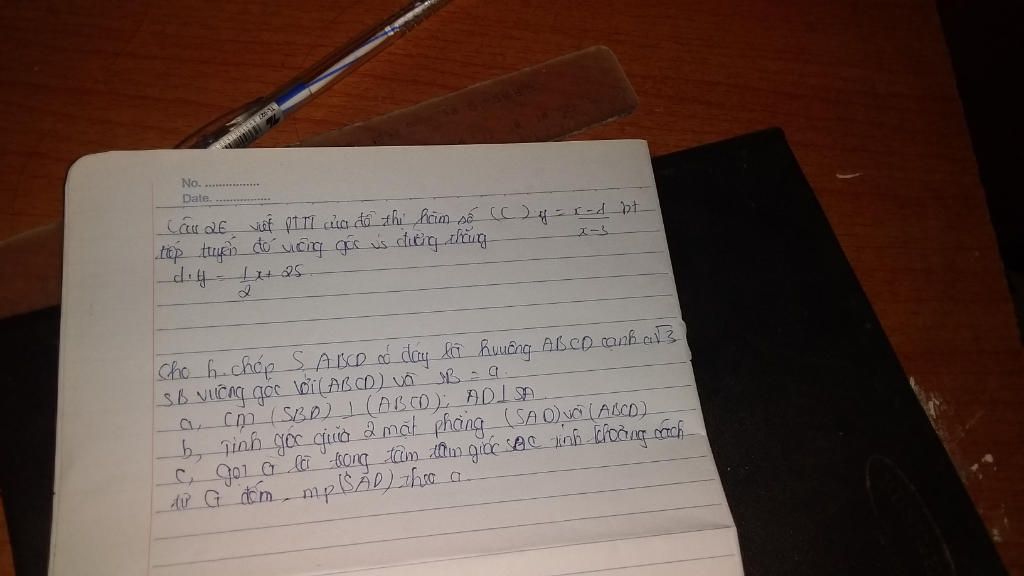 No. ................
Date. ................
Câu 26 viết PTTT của đồ thị hàm số (C) y = x-1/x-3 bt
tiếp tuyến đó vuông góc vs đường thẳng
d: y = 1/2 x + 25.
Cho h.chóp S ABCD có đáy là hvuông ABCD cạnh a√3
SB vuông góc với (ABCD) và SB = a.
a, cm (SBD) ⊥ (ABCD); AD ⊥ SA
b, Tính góc giữa 2 mặt phẳng (SAD) với (ABCD)
c, gọi G là trọng tâm tam giác tính khoảng cách
từ G đến mp (SAD) theo a.